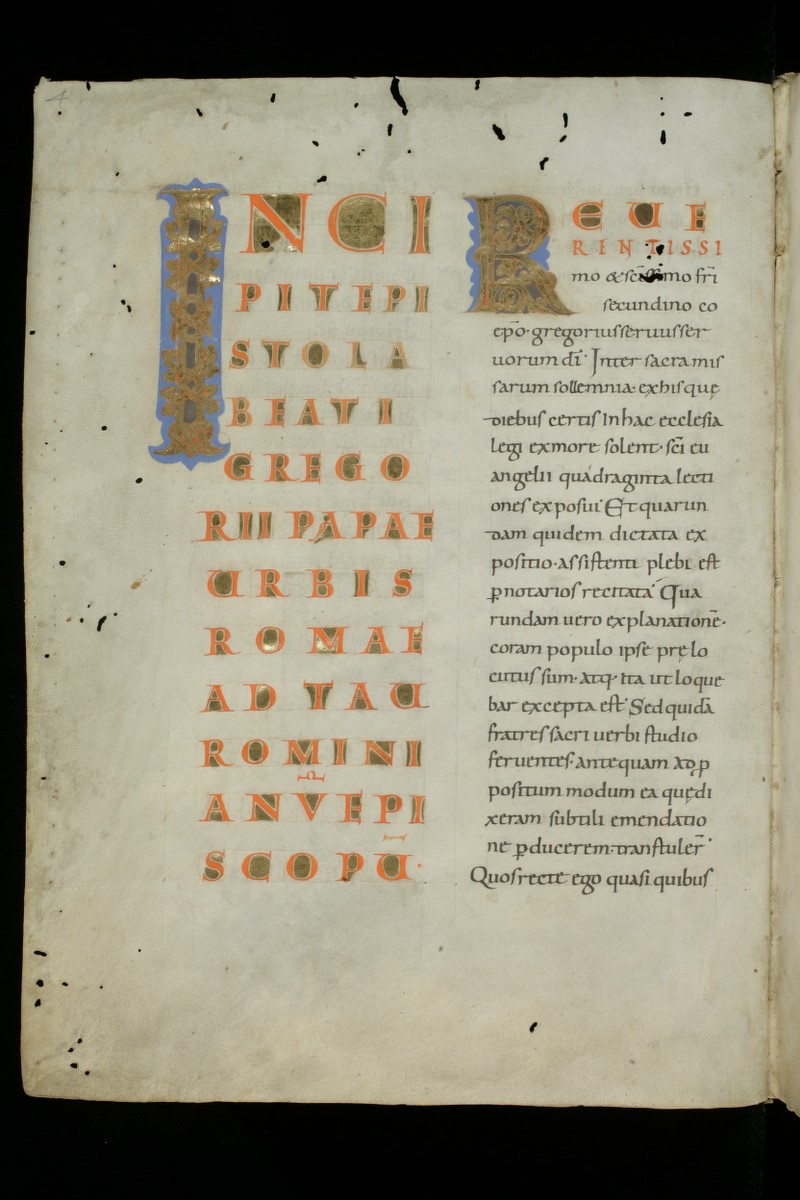 INCI
PIT EPI
STOLA
BEATI
GREGO
RII PAPAE
URBIS
ROMAE
AD TAU
ROMINI
TANUM EPI
SCOPŪ·
REUE
RENTISSI
mo & sc̄issimo fr̄i
secundino co
ep̄o· gregorius seruus ser
uorum dī· Inter sacra mis
sarum sollemnia· ex his quę
diebus certis In hac ecclesia
legi ex more solent· sc̄i eu
angelii quadraginta lecti
ones exposui· Et quarun
dam quidem dictata ex
positio· assistenti plebi est
ꝑ notarios recitata· Qua
rundam uero explanationē·
coram populo ipse prę lo
cutus sum· Atq· ita ut loque
bar excepta est· Sed quidā
fratres sacri uerbi studio
feruentes· Antequam Ad ꝓ
positum modum ea quę di
xeram subtili emendatio
ne ꝑducerem· transtuler̄·
Quos recte ego quasi quibus